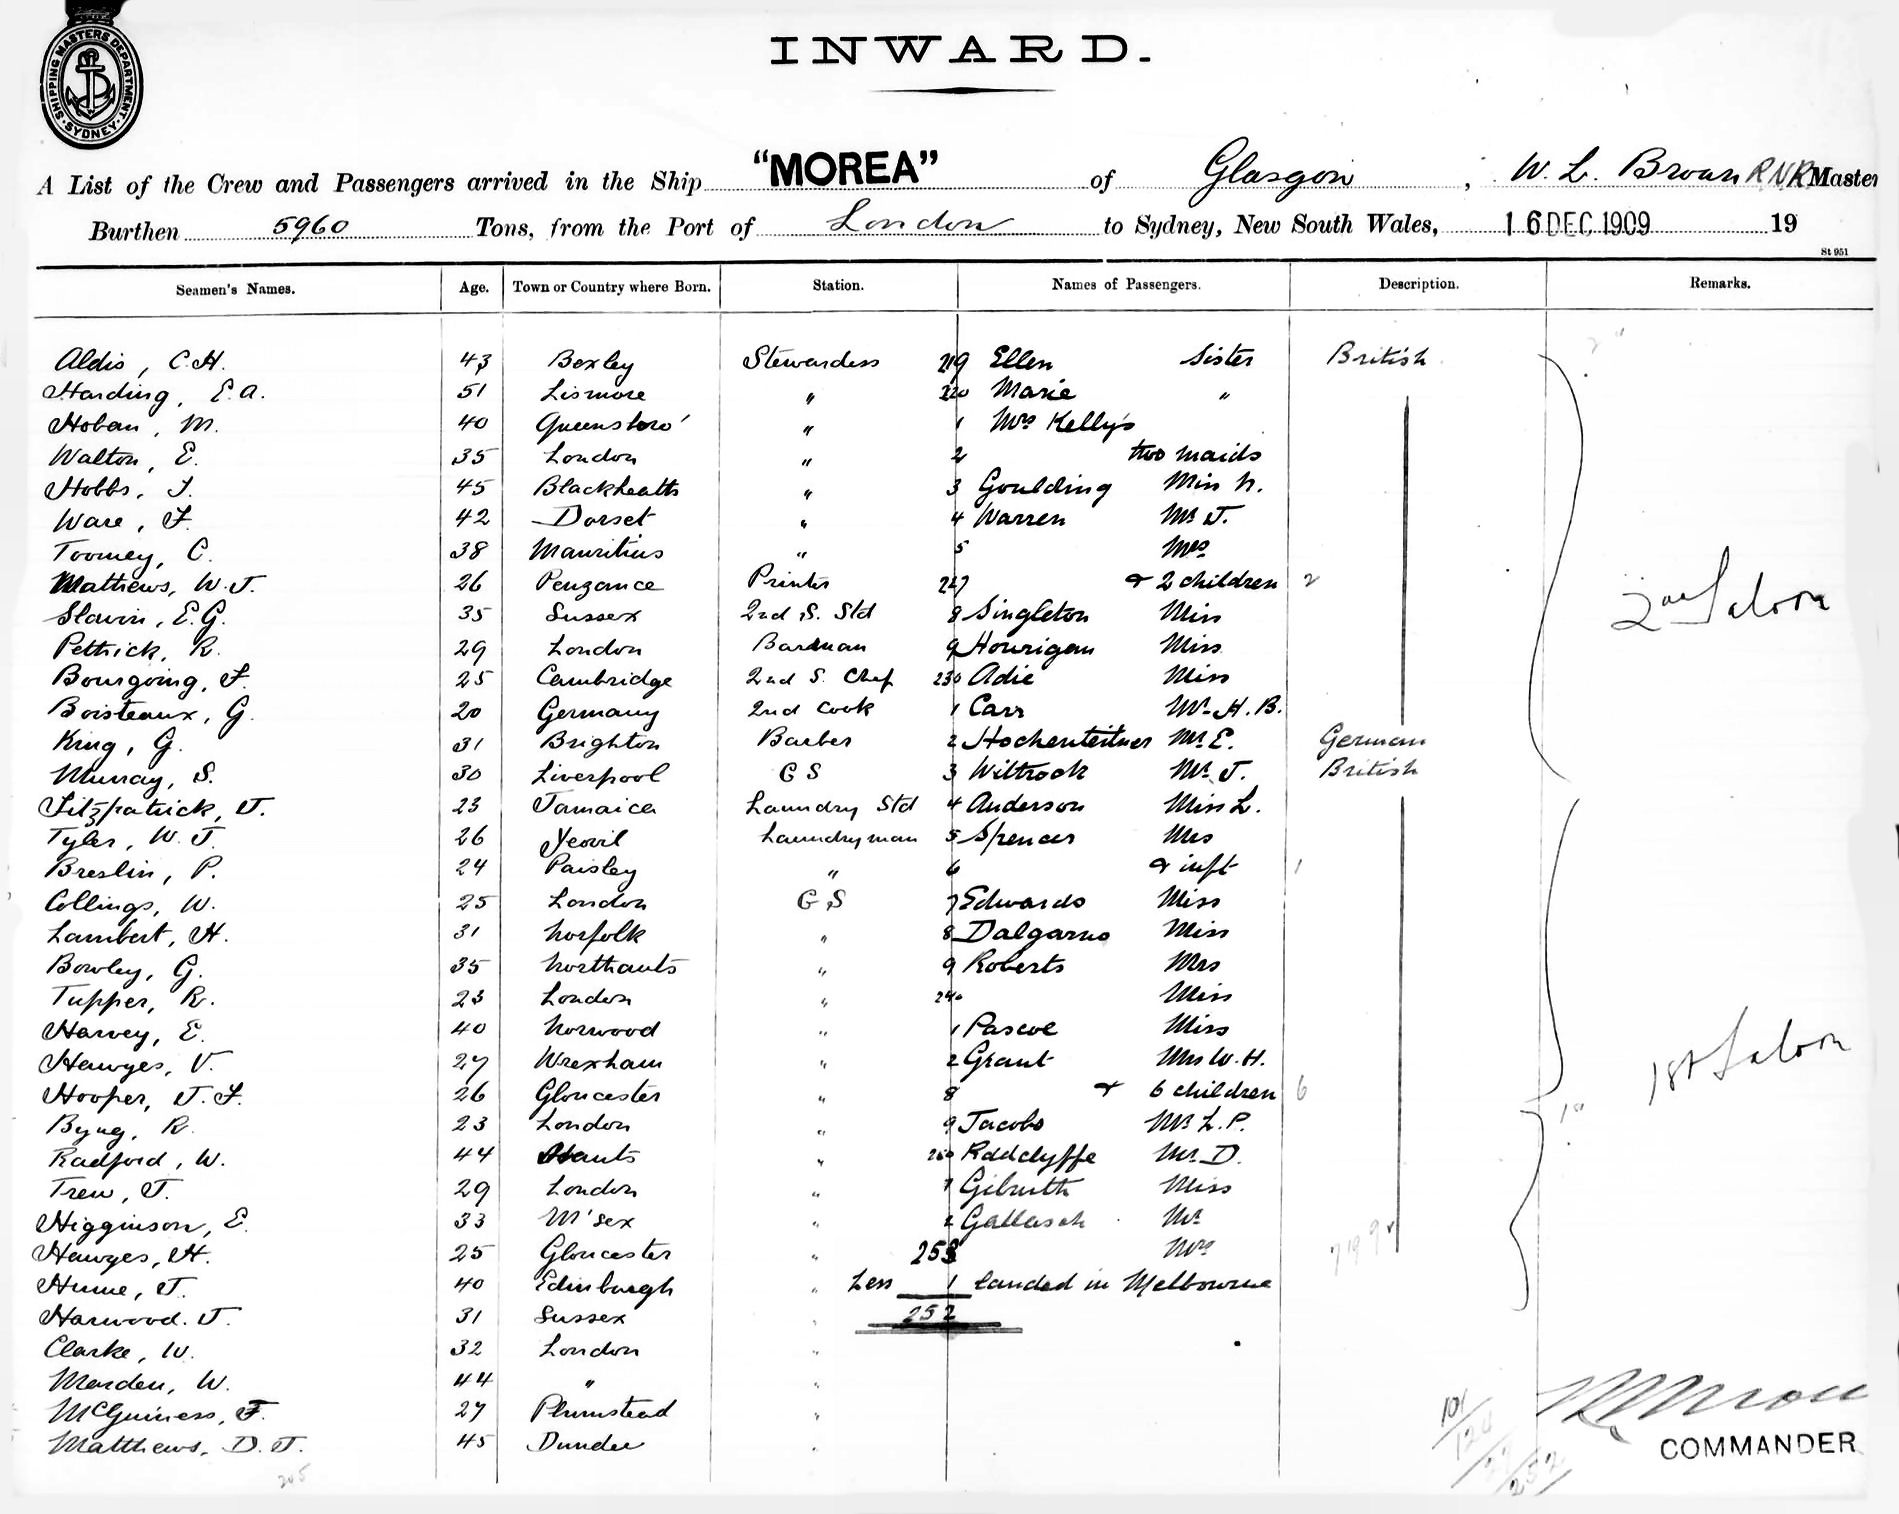 SHIPPING MASTERS DEPARTMENT. SYDNEY.
INWARD.
A List of the Crew and Passengers arrived in the Ship "MOREA" of Glasgow, W. L. Brown R.N.R. Master
Burthen 5960 Tons, from the Port of London to Sydney, New South Wales, 16 DEC 1909 19
St 951
Seamen's Names. Age. Town or Country where Born. Station. Names of Passengers. Description. Remarks.
Aldis, C.H. 43 Bexley Stewardess 219 Ellen Sister British
Harding, E.A. 51 Lismore " 220 Marie "
Hoban, M. 40 Queensboro' " 1 Mrs Kelly's
Walton, E. 35 London " 2 two maids
Hobbs, J. 45 Blackheath " 3 Goulding Miss N.
Ware, F. 42 Dorset " 4 Warren Mr J.
Toomey, C. 38 Mauritius " 5 Mrs
Mathews, W.J. 26 Penzance Printer 227 & 2 children 2 2nd Saloon
Slavin, E.G. 35 Sussex 2nd S. Std 8 Singleton Miss
Pethick, R. 29 London Barman 9 Hourigan Miss
Bourgoing, F. 25 Cambridge 2nd S. Chef 230 Adie Miss
Boisteaux, G. 20 Germany 2nd Cook 1 Carr Mr. H.B.
King, G. 31 Brighton Barber 2 Hochenteitner Mr E. German
Murray, S. 30 Liverpool GS 3 Wiltrock Mr. J. British
Fitzpatrick, J. 23 Jamaica Laundry Std 4 Anderson Miss L.
Tyler, W.J. 26 Yeovil Laundryman 5 Spencer Mrs
Breslin, P. 24 Paisley " 6 & inft 1
Collings, W. 25 London GS 7 Edwards Miss
Lambert, H. 31 Norfolk " 8 Dalgarno Miss
Bowley, G. 35 Northants " 9 Roberts Mrs
Tupper, R. 23 London " 240 Miss
Harvey, E. 40 Norwood " 1 Pascoe Miss
Hawyes, V. 27 Wrexham " 2 Grant Mrs W.H. 1st Saloon
Hooper, J.F. 26 Gloucester " 8 & 6 children 6
Byng, R. 23 London " 9 Jacobs Mr L.P.
Radford, W. 44 Hants " 250 Radclyffe Mr D.
Trew, J. 29 London " 1 Gilruth Miss
Higginson, E. 33 M'sex " 2 Gallasch Mr
Hawyes, H. 25 Gloucester " 253 Mrs
Hume, J. 40 Edinburgh " Less 1 landed in Melbourne
Harwood. J. 31 Sussex " 252
Clarke, W. 32 London "
Marden, W. 44 " "
McGuiness, F. 27 Plumstead "
Matthews, D.J. 45 Dundee "
COMMANDER
205
252